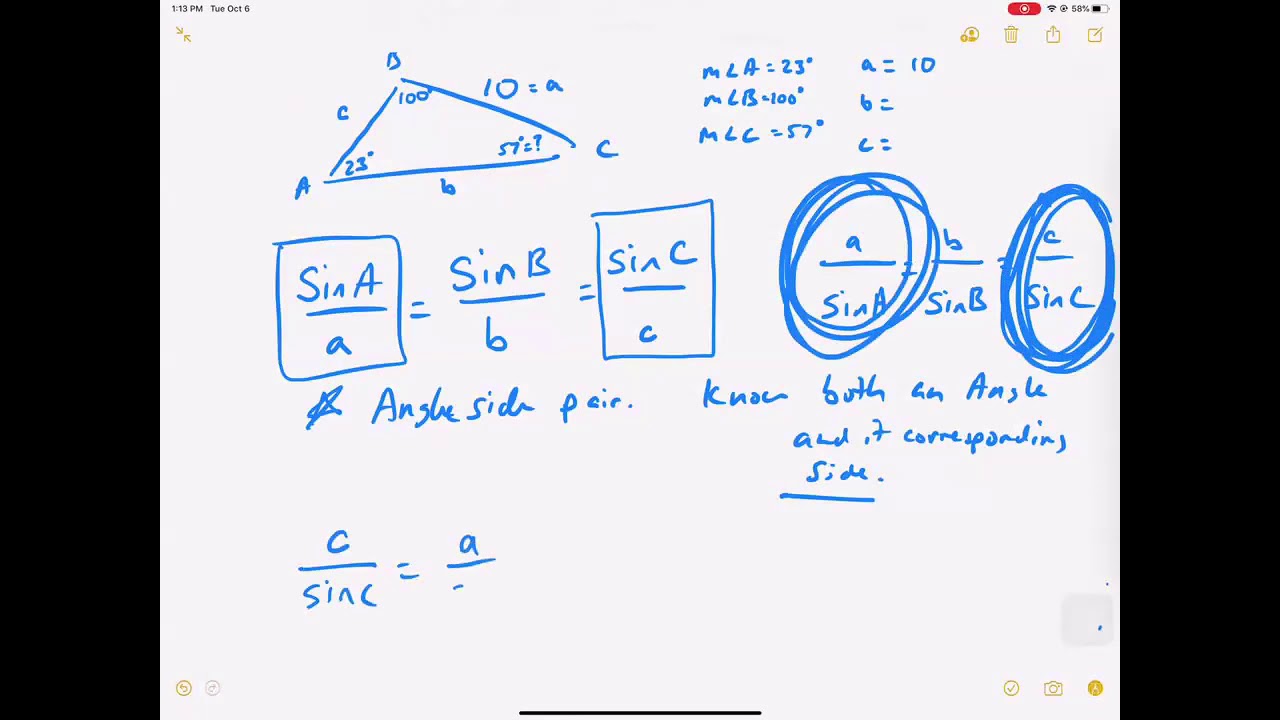 1:13 PM Tue Oct 6
58%
B
100°
10 = a
c
23°
57° = ?
A
b
C
m∠A = 23°
m∠B = 100°
m∠C = 57°
a = 10
b =
c =
SinA
a
=
SinB
b
=
SinC
c
a
SinA
=
b
SinB
=
c
SinC
Angle side pair. Know both an Angle
and it corresponding
Side.
c
SinC
=
a